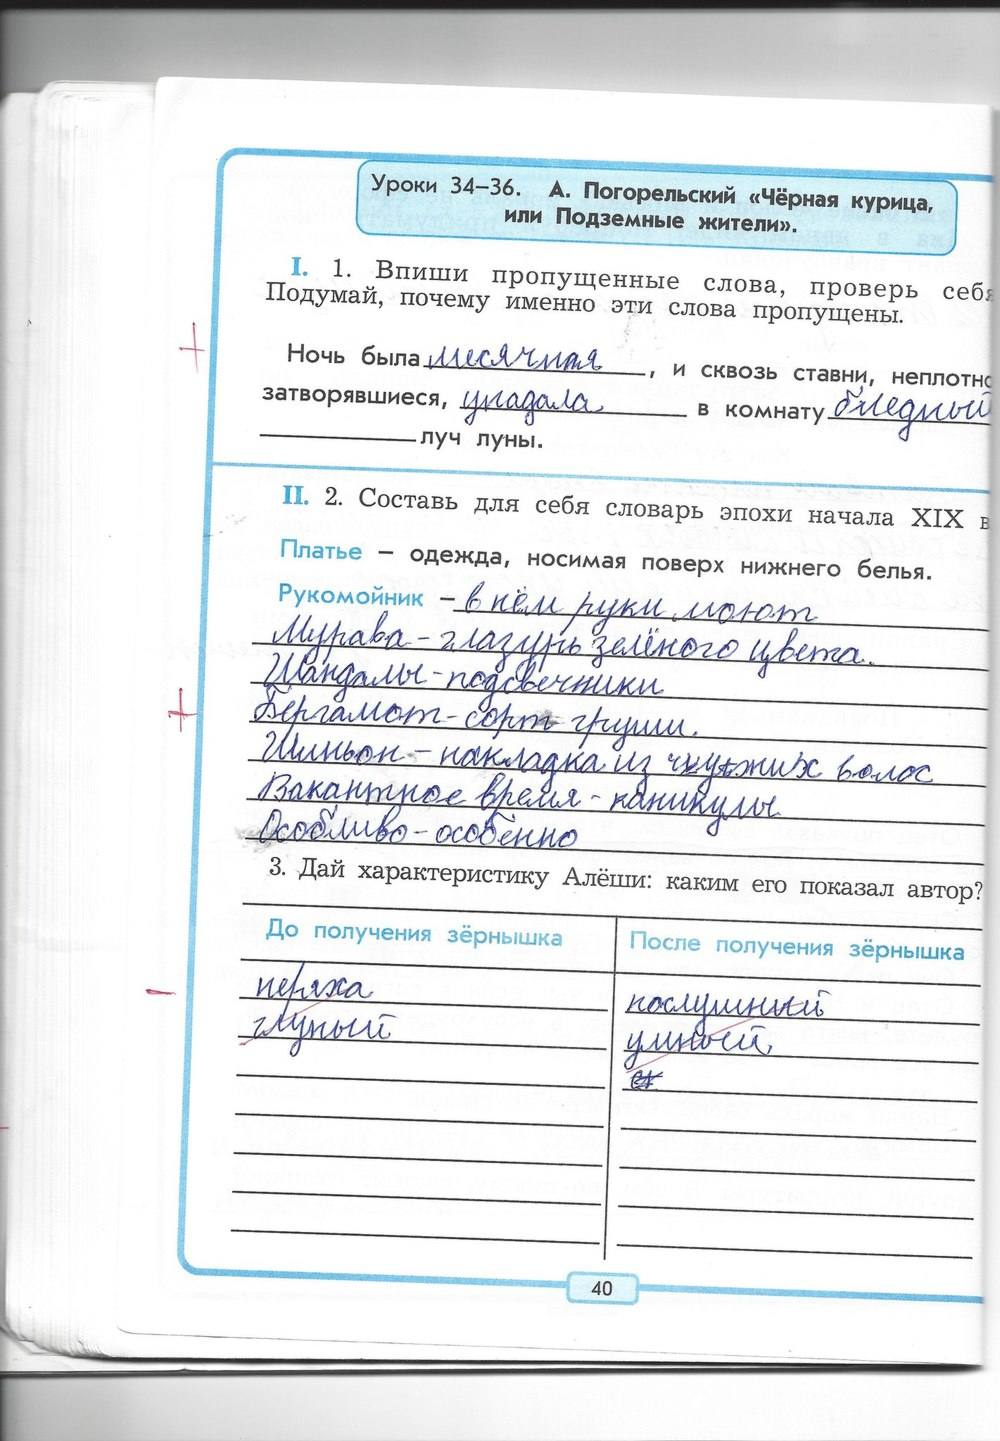 Уроки 34–36. А. Погорельский «Чёрная курица,
или Подземные жители».
I. 1. Впиши пропущенные слова, проверь себя
Подумай, почему именно эти слова пропущены.
Ночь была месячная, и сквозь ставни, неплотно
затворявшиеся, упадала в комнату бледный
луч луны.
II. 2. Составь для себя словарь эпохи начала XIX в
Платье – одежда, носимая поверх нижнего белья.
Рукомойник – в нём руки моют
Мурава – глазурь зелёного цвета.
Шандалы - подсвечники
Бергамот - сорт груши.
Шиньон - накладка из чужих волос
Вакантное время - каникулы
Особливо - особенно
3. Дай характеристику Алёши: каким его показал автор?
До получения зёрнышка
После получения зёрнышка
неряха
послушный
глупый
умный,
40